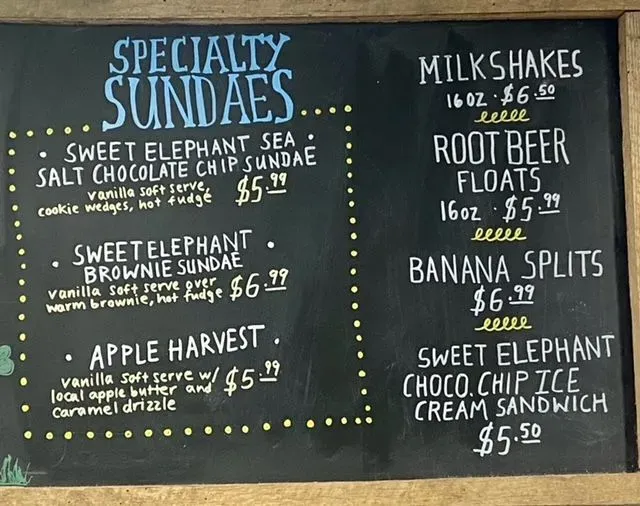 SPECIALTY
SUNDAES
• SWEET ELEPHANT SEA •
SALT CHOCOLATE CHIP SUNDAE
vanilla soft serve,
cookie wedges, hot fudge $5.99
• SWEET ELEPHANT •
BROWNIE SUNDAE
vanilla soft serve over
warm brownie, hot fudge $6.99
• APPLE HARVEST •
vanilla soft serve w/
local apple butter and $5.99
caramel drizzle
MILKSHAKES
16oz · $6.50
ROOT BEER
FLOATS
16oz · $5.99
BANANA SPLITS
$6.99
SWEET ELEPHANT
CHOCO. CHIP ICE
CREAM SANDWICH
$5.50